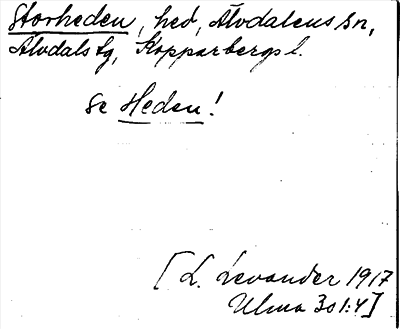 Storheden, hed, Älvdalens sn,
Älvdals tg, Kopparbergs l.
se Heden!
[L. Levander 1917
Ulma 303 1:4]